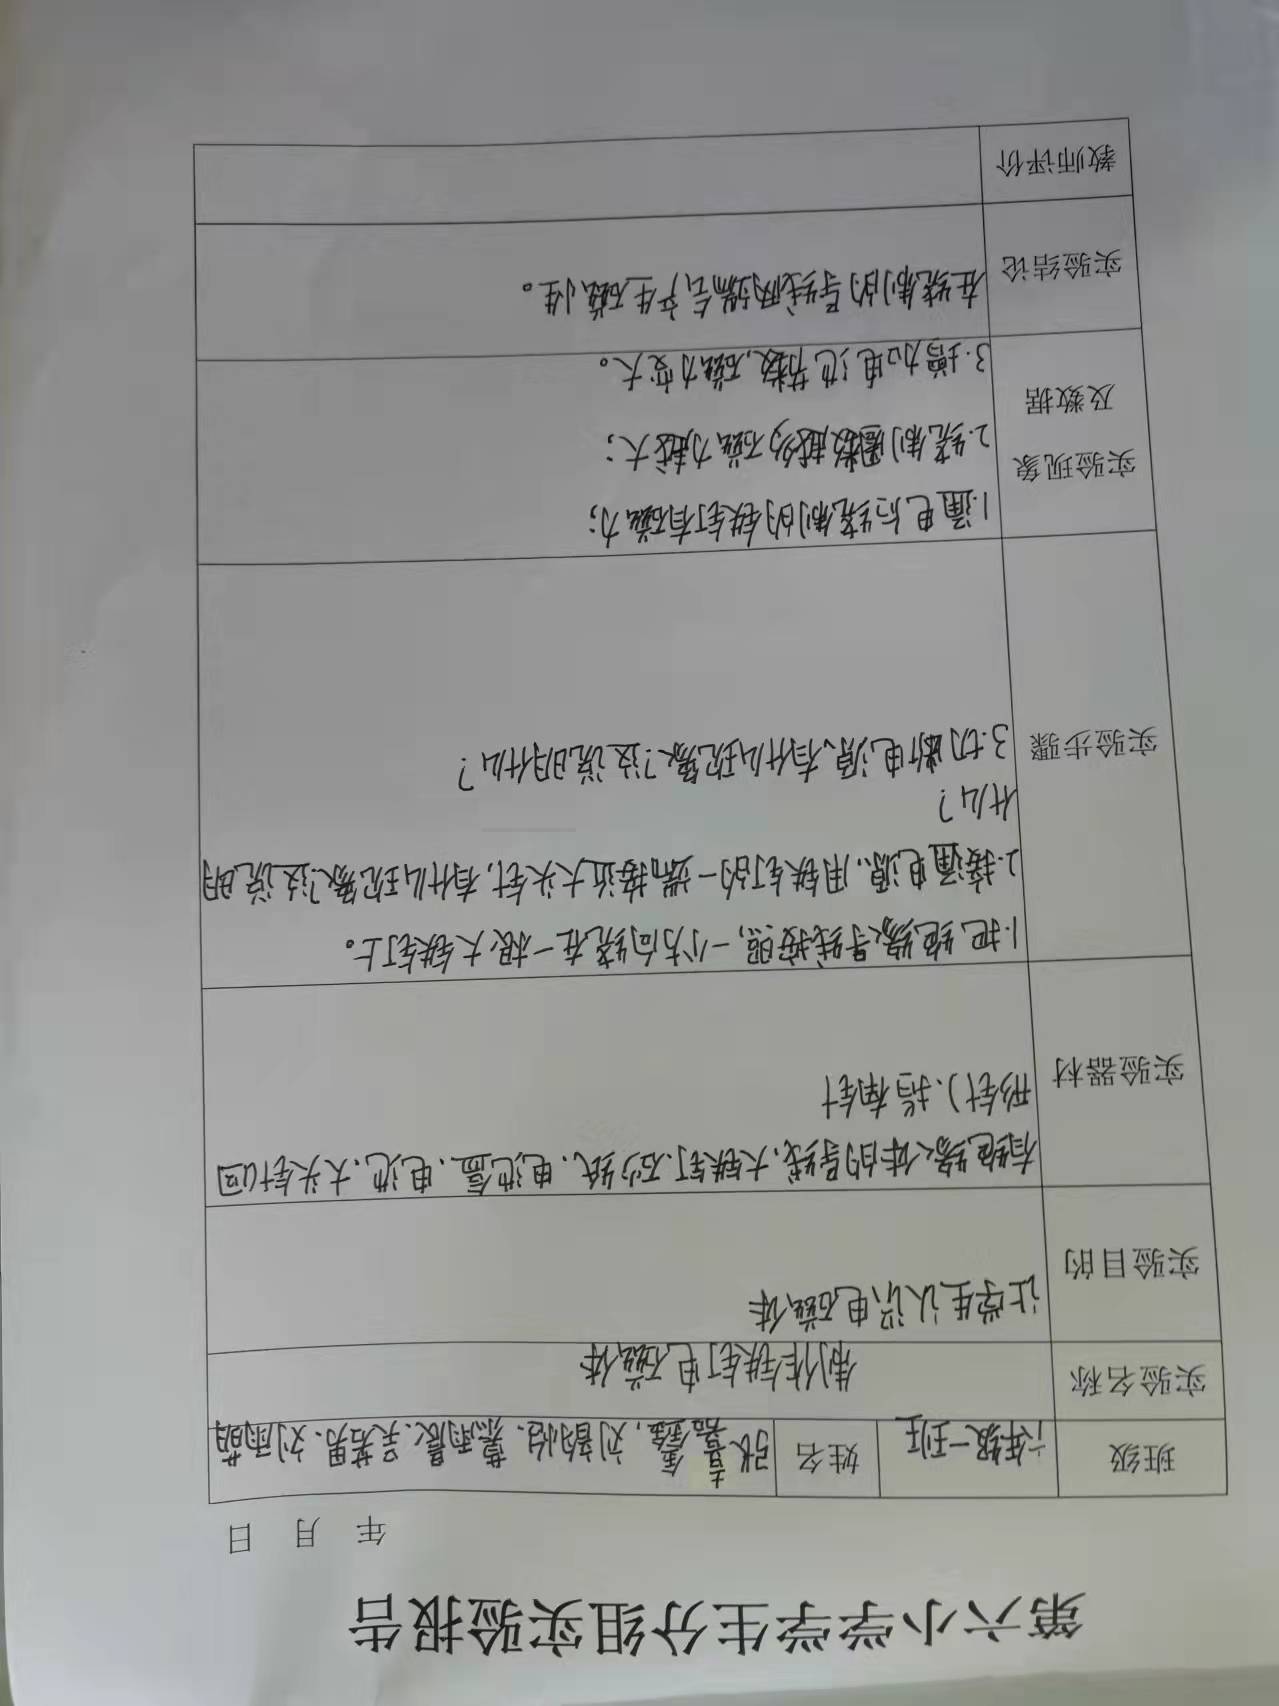 第六小学学生分组实验报告
年 月 日
班级 六年级一班 姓名 张嘉鑫，刘韵怡、慕雨晨、吴若男、刘雨萌
实验名称 制作铁钉电磁体
实验目的 让学生认识电磁体
实验器材 有绝缘体的导线、大铁钉、砂纸、电池盒、电池、大头针(回
形针)、指南针
实验步骤 1.把绝缘导线按照，一个方向绕在一根大铁钉上。
2.接通电源，用铁钉的一端接近大头针，有什么现象？这说明
什么？
3.切断电源、有什么现象？这说明什么？
实验现象
及数据
1.通电后绕制的铁钉有磁力；
2.绕制圈数越多磁力越大；
3.增加电池节数，磁力变大。
实验结论 在绕制的导线两端会产生磁性。
教师评价